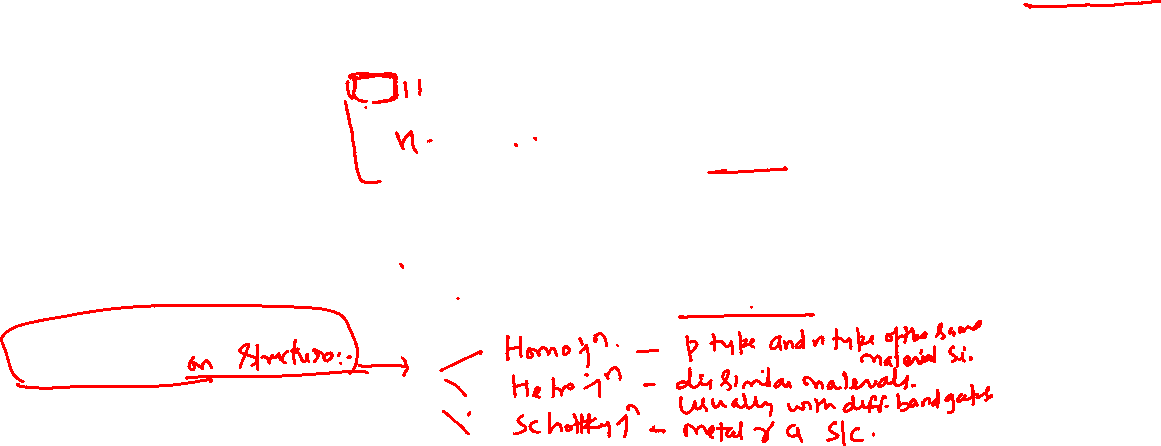 11
n.
on structure:.
Homo jn. - p type and n type of the same
material si.
Hetro jn - dis similar materials.
usually with diff. band gaps
schottky jn - metal & a s/c.